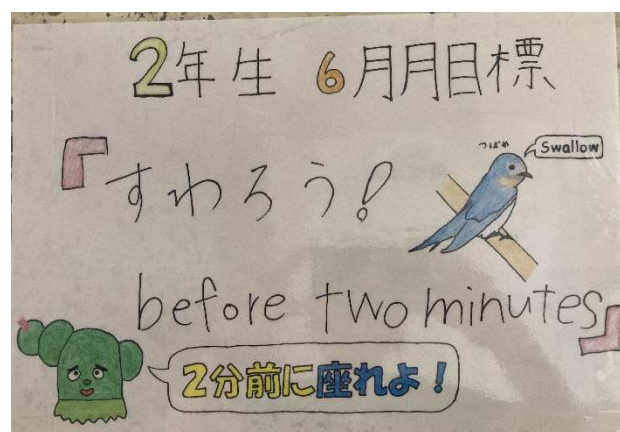 2年生 6月月目標
『すわろう!
つばめ
Swallow
before two minutes』
2分前に座れよ!